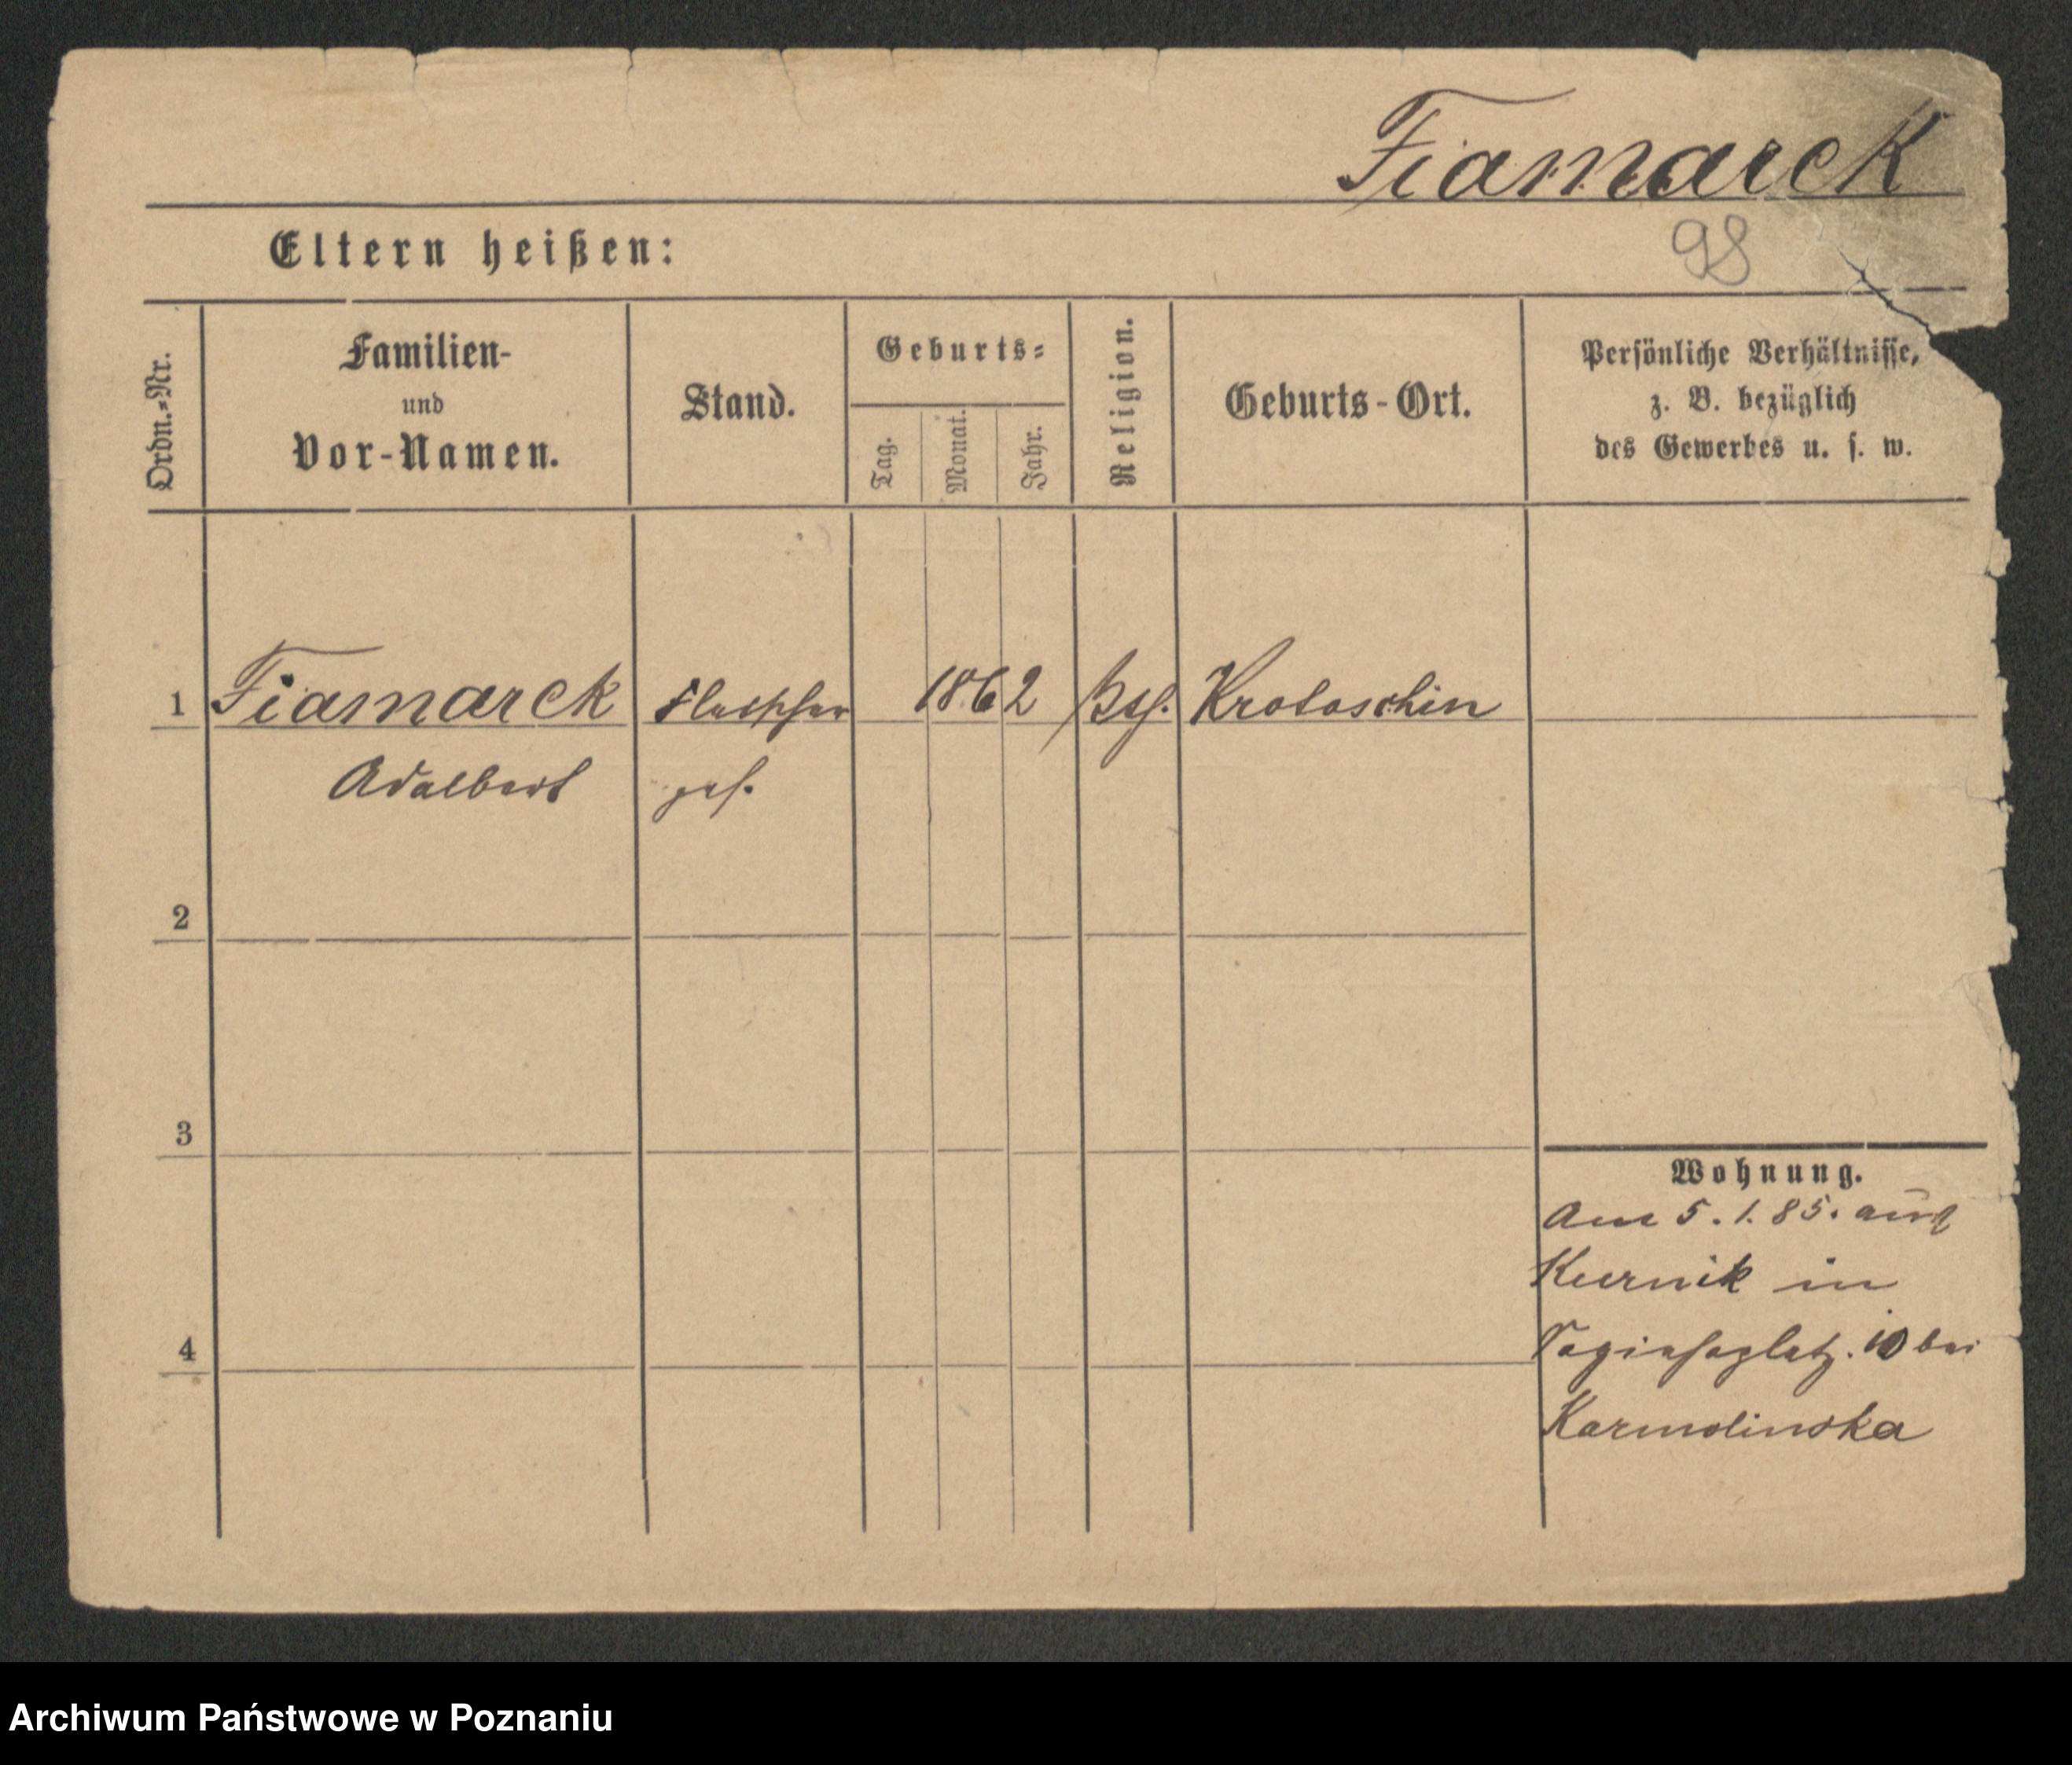 Fiamarck
98
Eltern heißen:
Ordn.-Nr.
Familien-
und
Vor-Namen.
Stand.
Geburts-
Tag.
Monat.
Jahr.
Religion.
Geburts-Ort.
Persönliche Verhältnisse,
z. B. bezüglich
des Gewerbes u. s. w.
1 Fiamarck 1862 Krotoschin
Adalbert ges.
2
3
4
Wohnung.
Am 5.1.85. aus
Kurnik in
Sapiehaplatz. 10 bei
Karmolinska
Archiwum Państwowe w Poznaniu